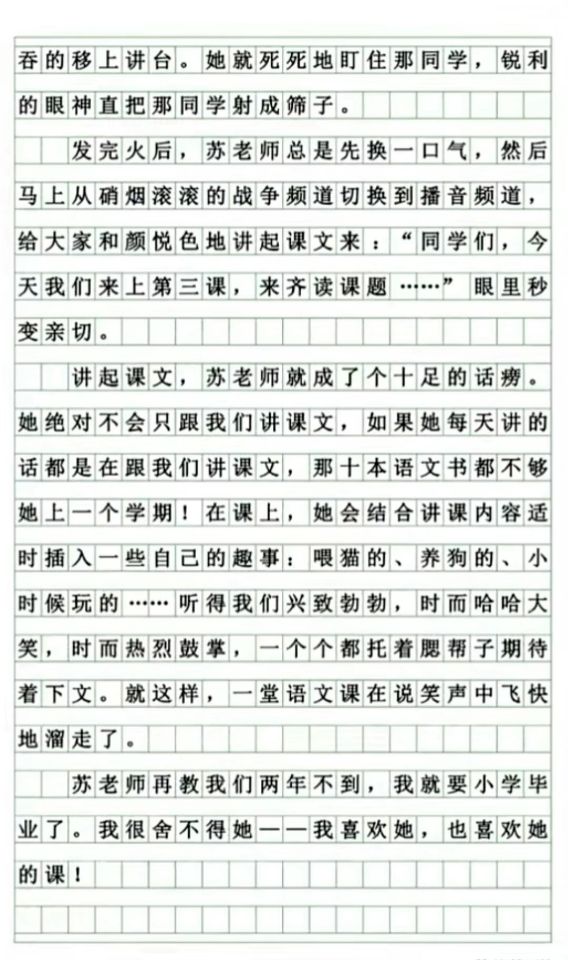 吞的移上讲台。她就死死地盯住那同学，锐利
的眼神直把那同学射成筛子。
发完火后，苏老师总是先换一口气，然后
马上从硝烟滚滚的战争频道切换到播音频道，
给大家和颜悦色地讲起课文来：“同学们，今
天我们来上第三课，来齐读课题……”眼里秒
变亲切。
讲起课文，苏老师就成了个十足的话痨。
她绝对不会只跟我们讲课文，如果她每天讲的
话都是在跟我们讲课文，那十本语文书都不够
她上一个学期！在课上，她会结合讲课内容适
时插入一些自己的趣事：喂猫的、养狗的、小
时候玩的……听得我们兴致勃勃，时而哈哈大
笑，时而热烈鼓掌，一个个都托着腮帮子期待
着下文。就这样，一堂语文课在说笑声中飞快
地溜走了。
苏老师再教我们两年不到，我就要小学毕
业了。我很舍不得她——我喜欢她，也喜欢她
的课！